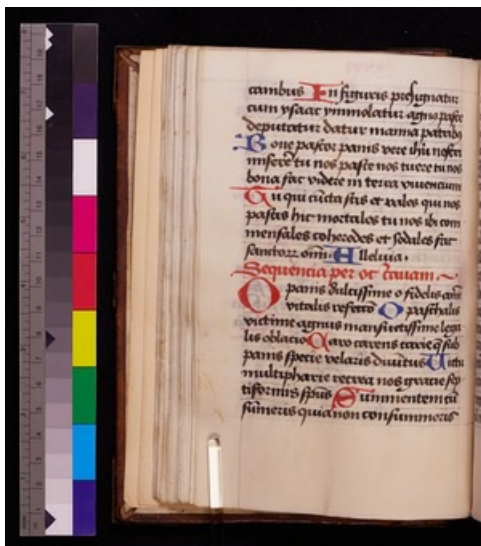 canibus In figuris presignatur
cum ysaac ymmolatur agnus pasce
deputatur datur manna patribus
Bone pastor panis vere ihu nostri
miserere tu nos pasce nos tuere tu nos
bona fac videre in terra viuencium
Tu qui cuncta scis et vales qui nos
pascis hic mortales tu nos ibi com
mensales coheredes et sodales fac
sanctorum omnium Alleluia.
Sequencia per octauam.
O panis dulcissime o fidelis anime
vitalis refectio O paschalis
victime agnus mansuetissime lega
lis oblacio Caro carens carie que sub
panis specie velaris diuinitus Uictu
multipharie recrea nos gracie sep
tiformis spiritus Summentem cum
sumeris quia non consummeris